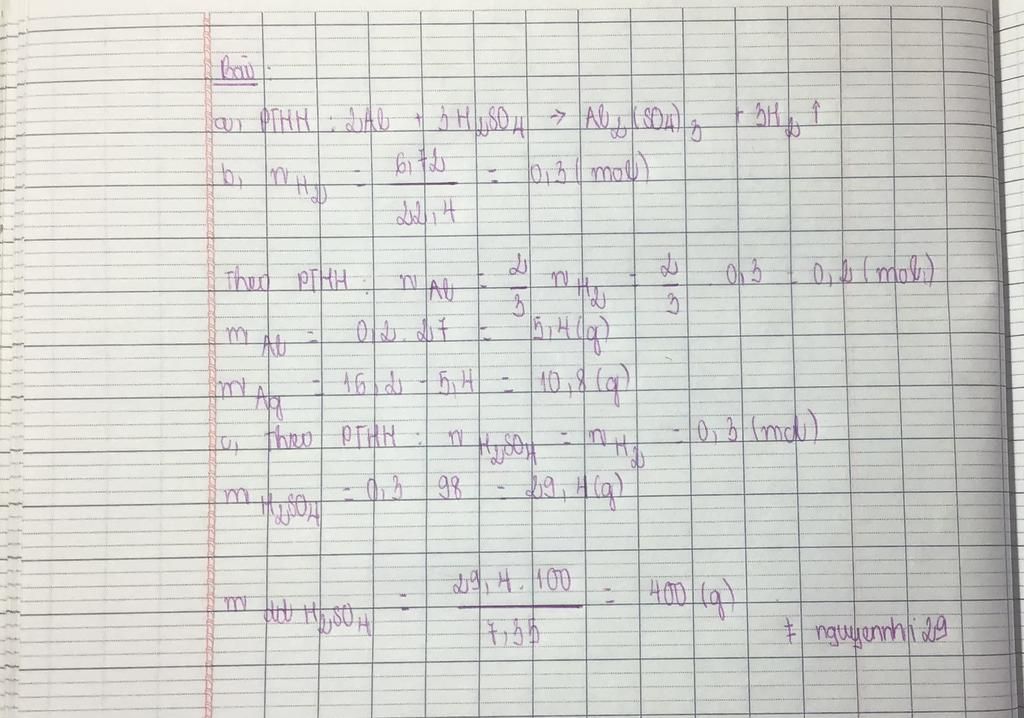 Bài:
a, PTHH : 2Al + 3H2SO4 → Al2(SO4)3 + 3H2 ↑
b, nH2 = 6,72 / 22,4 = 0,3 (mol)
Theo PTHH : nAl = 2/3 nH2 = 2/3 . 0,3 = 0,2 (mol)
mAl = 0,2 . 27 = 5,4 (g)
mAg = 16,2 - 5,4 = 10,8 (g)
c, Theo PTHH : nH2SO4 = nH2 = 0,3 (mol)
mH2SO4 = 0,3 . 98 = 29,4 (g)
mdd H2SO4 = 29,4 . 100 / 7,35 = 400 (g)
7 nguyennhi29